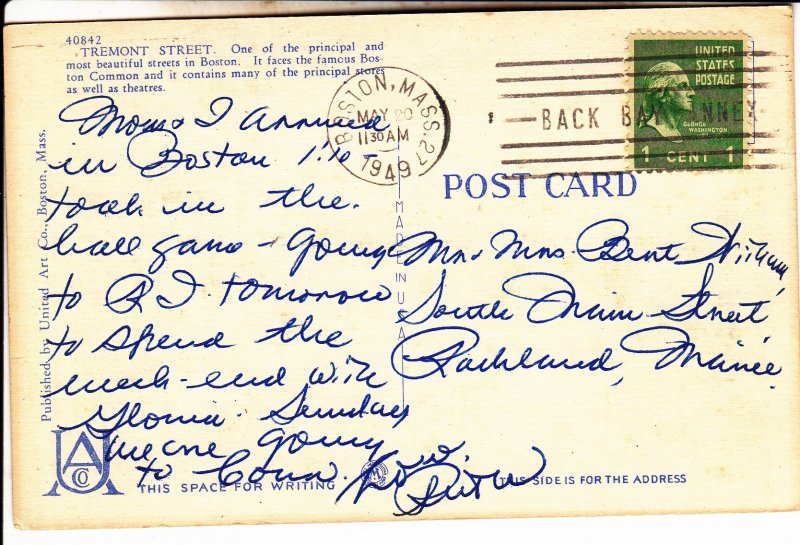 40842
TREMONT STREET. One of the principal and
most beautiful streets in Boston. It faces the famous Bos-
ton Common and it contains many of the principal stores
as well as theatres.
Mom & I arrived
in Boston 1:10 -
took in the
ball game - Going
to R I tomorrow
to spend the
week-end with
Gloria. Sunday
we are going
to Conn. Love,
Ruth
Published by United Art Co., Boston, Mass.
UACo
THIS SPACE FOR WRITING
MADE IN U.S.A.
BOSTON, MASS. 27
MAY 20
11 30 AM
1949
BACK BAY ANNEX
UNITED
STATES
POSTAGE
GEORGE
WASHINGTON
1 CENT 1
POST CARD
Mr. Mrs. Bert
South Main Street
Rockland, Maine
THIS SIDE IS FOR THE ADDRESS